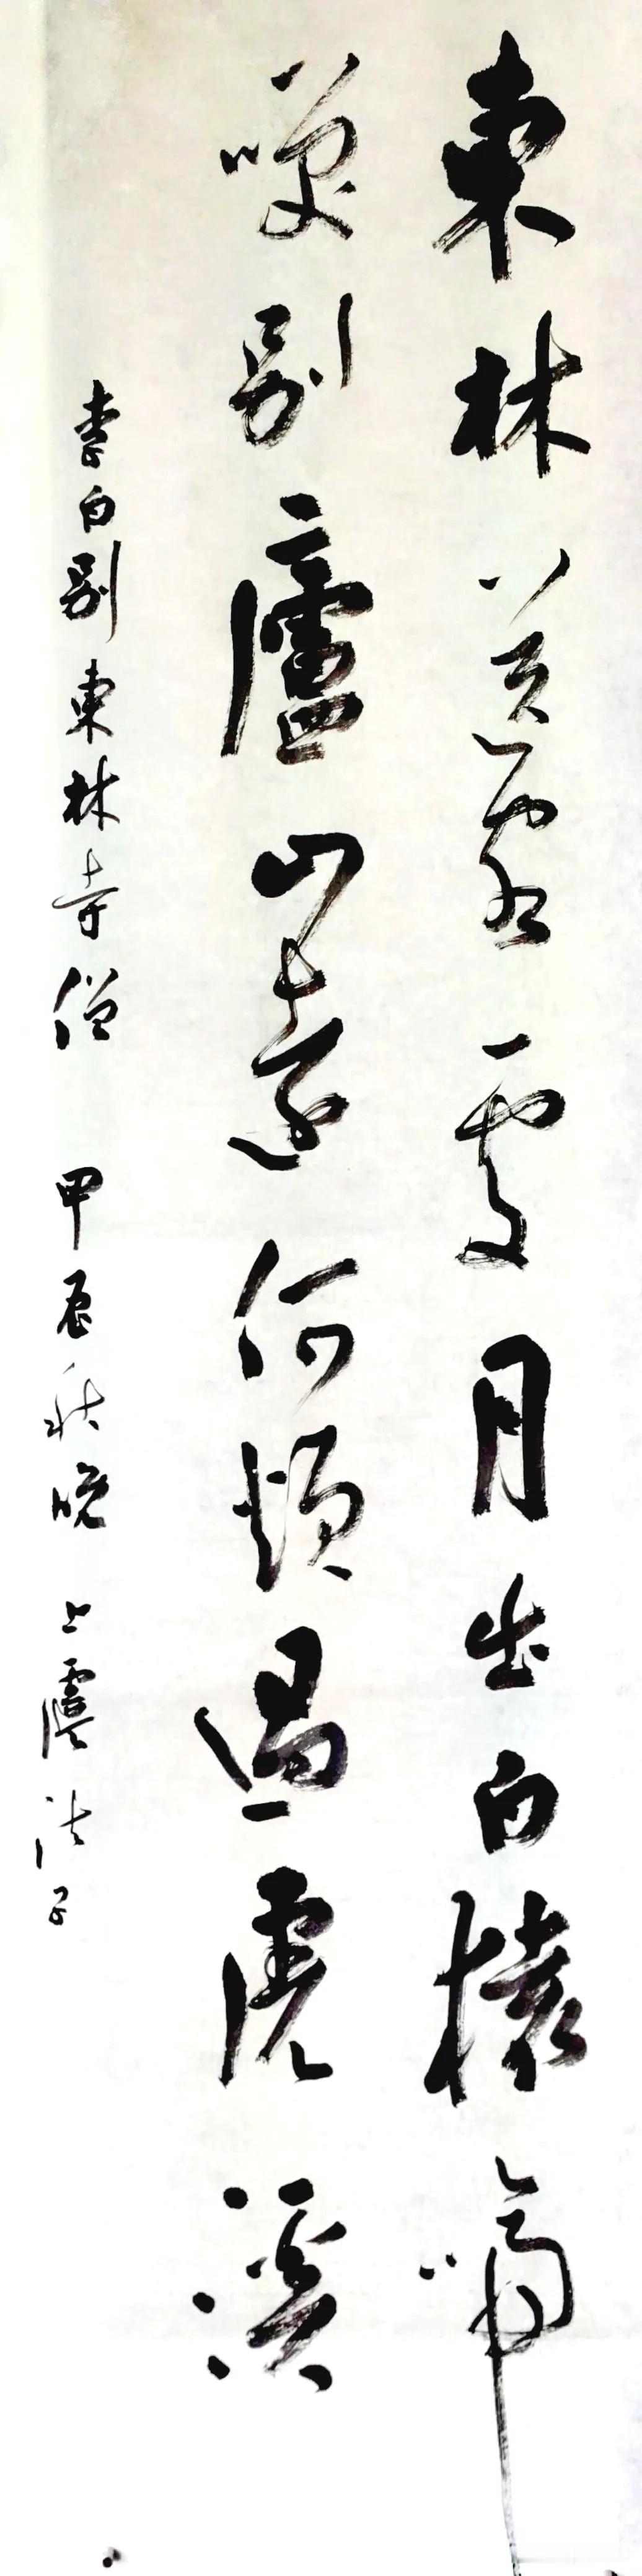 東林送客處月出白猿啼
笑別廬山遠何煩過虎溪
李白別東林寺僧 甲辰秋晚 上虞